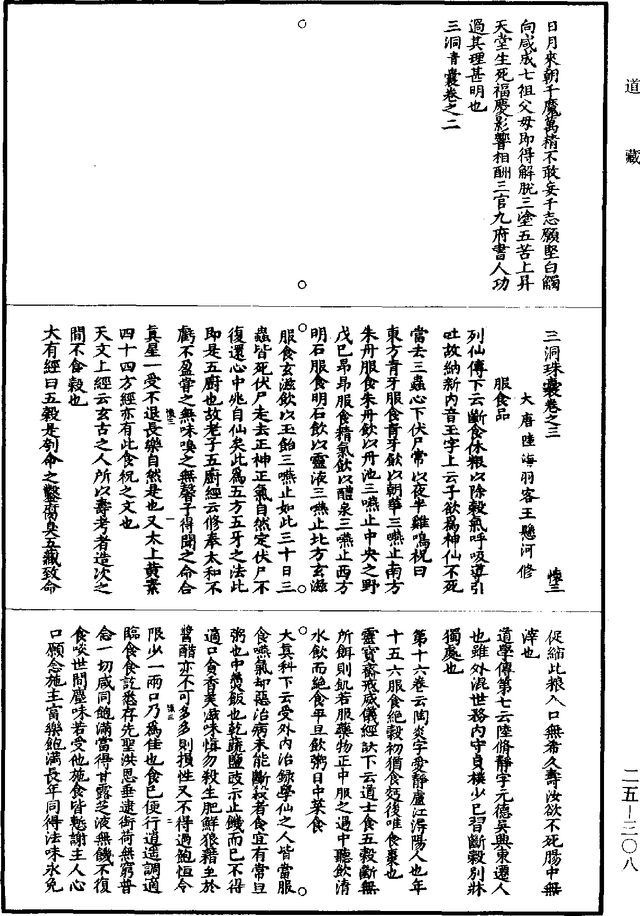 道藏
日月來朝千魔萬精不敢妄干志願堅白觸
向咸成七祖父母即得解脫三塗五苦上昇
天堂生死福慶影響相酬三官九府書人功
過其理甚明也
三洞青囊卷之二
三洞珠囊卷之三
懐三
大唐陸海羽客王懸河修
服食品
列仙傳下云斷食休粮以除穀氣呼吸導引
吐故納新内音玉字上云子欲爲神仙不死
當去三蟲心下伏尸常以夜半雞鳴祝曰
東方青牙服食青牙飲以朝華三嚥止南方
朱丹服食朱丹飲以丹池三嚥止中央之野
戊巳昂昂服食精氣飲以醴泉三嚥止西方
明石服食明石飲以靈液三嚥止北方玄滋
服食玄滋飲以玉飴三嚥止如此三十日三
蟲皆死伏尸走去正神正氣自然定伏尸不
復還心中兆自仙矣此爲五方五牙之法此
即是五廚也故老子五廚經云修奉太和不
虧不盈嘗之無味嗅之無馨子得聞之命合
真星一受不退長樂自然是也又太上黃素
四十四方經亦有此食祝之文也
天文上經云玄古之人所以壽考者造次之
間不食穀也
大有經曰五穀是刳命之鑿腐臭五藏致命
促縮此粮入口無希久壽汝欲不死腸中無
滓也
道學傳第七云陸脩靜字元德吳興東遷人
也雖外混世務内守貞樸少已習斷穀別牀
獨處也
第十六卷云陶炎字愛靜廬江潯陽人也年
十五六服食絶穀初猶食麨後唯食棗也
靈寶齋戒威儀經訣下云道士食五穀斷無
所餌則飢若服藥物正中服之過中聽飲清
水飲而絶食平旦飲粥日中菜食
大真科下云受外内治籙學仙之人皆當服
食嚥氣却惡治病未能斷穀者食宜有常旦
粥也中麨飯也乾蔬鹽豉示止饑而已不得
適口貪香美滋味慎勿殺生肥鮮狼藉至於
醬醋亦不可多多則損性又不得過飽恆令
限少一兩口乃爲佳也食已便行逍遥調適
臨食食訖悉存先聖洪恩垂逮銜荷無窮普
念一切咸同飽滿當得甘露芝液無饑不復
食啖世間塵味若受他施食皆慙謝主人心
口願念施主富樂飽滿長年同得法味永免
二五—三〇八